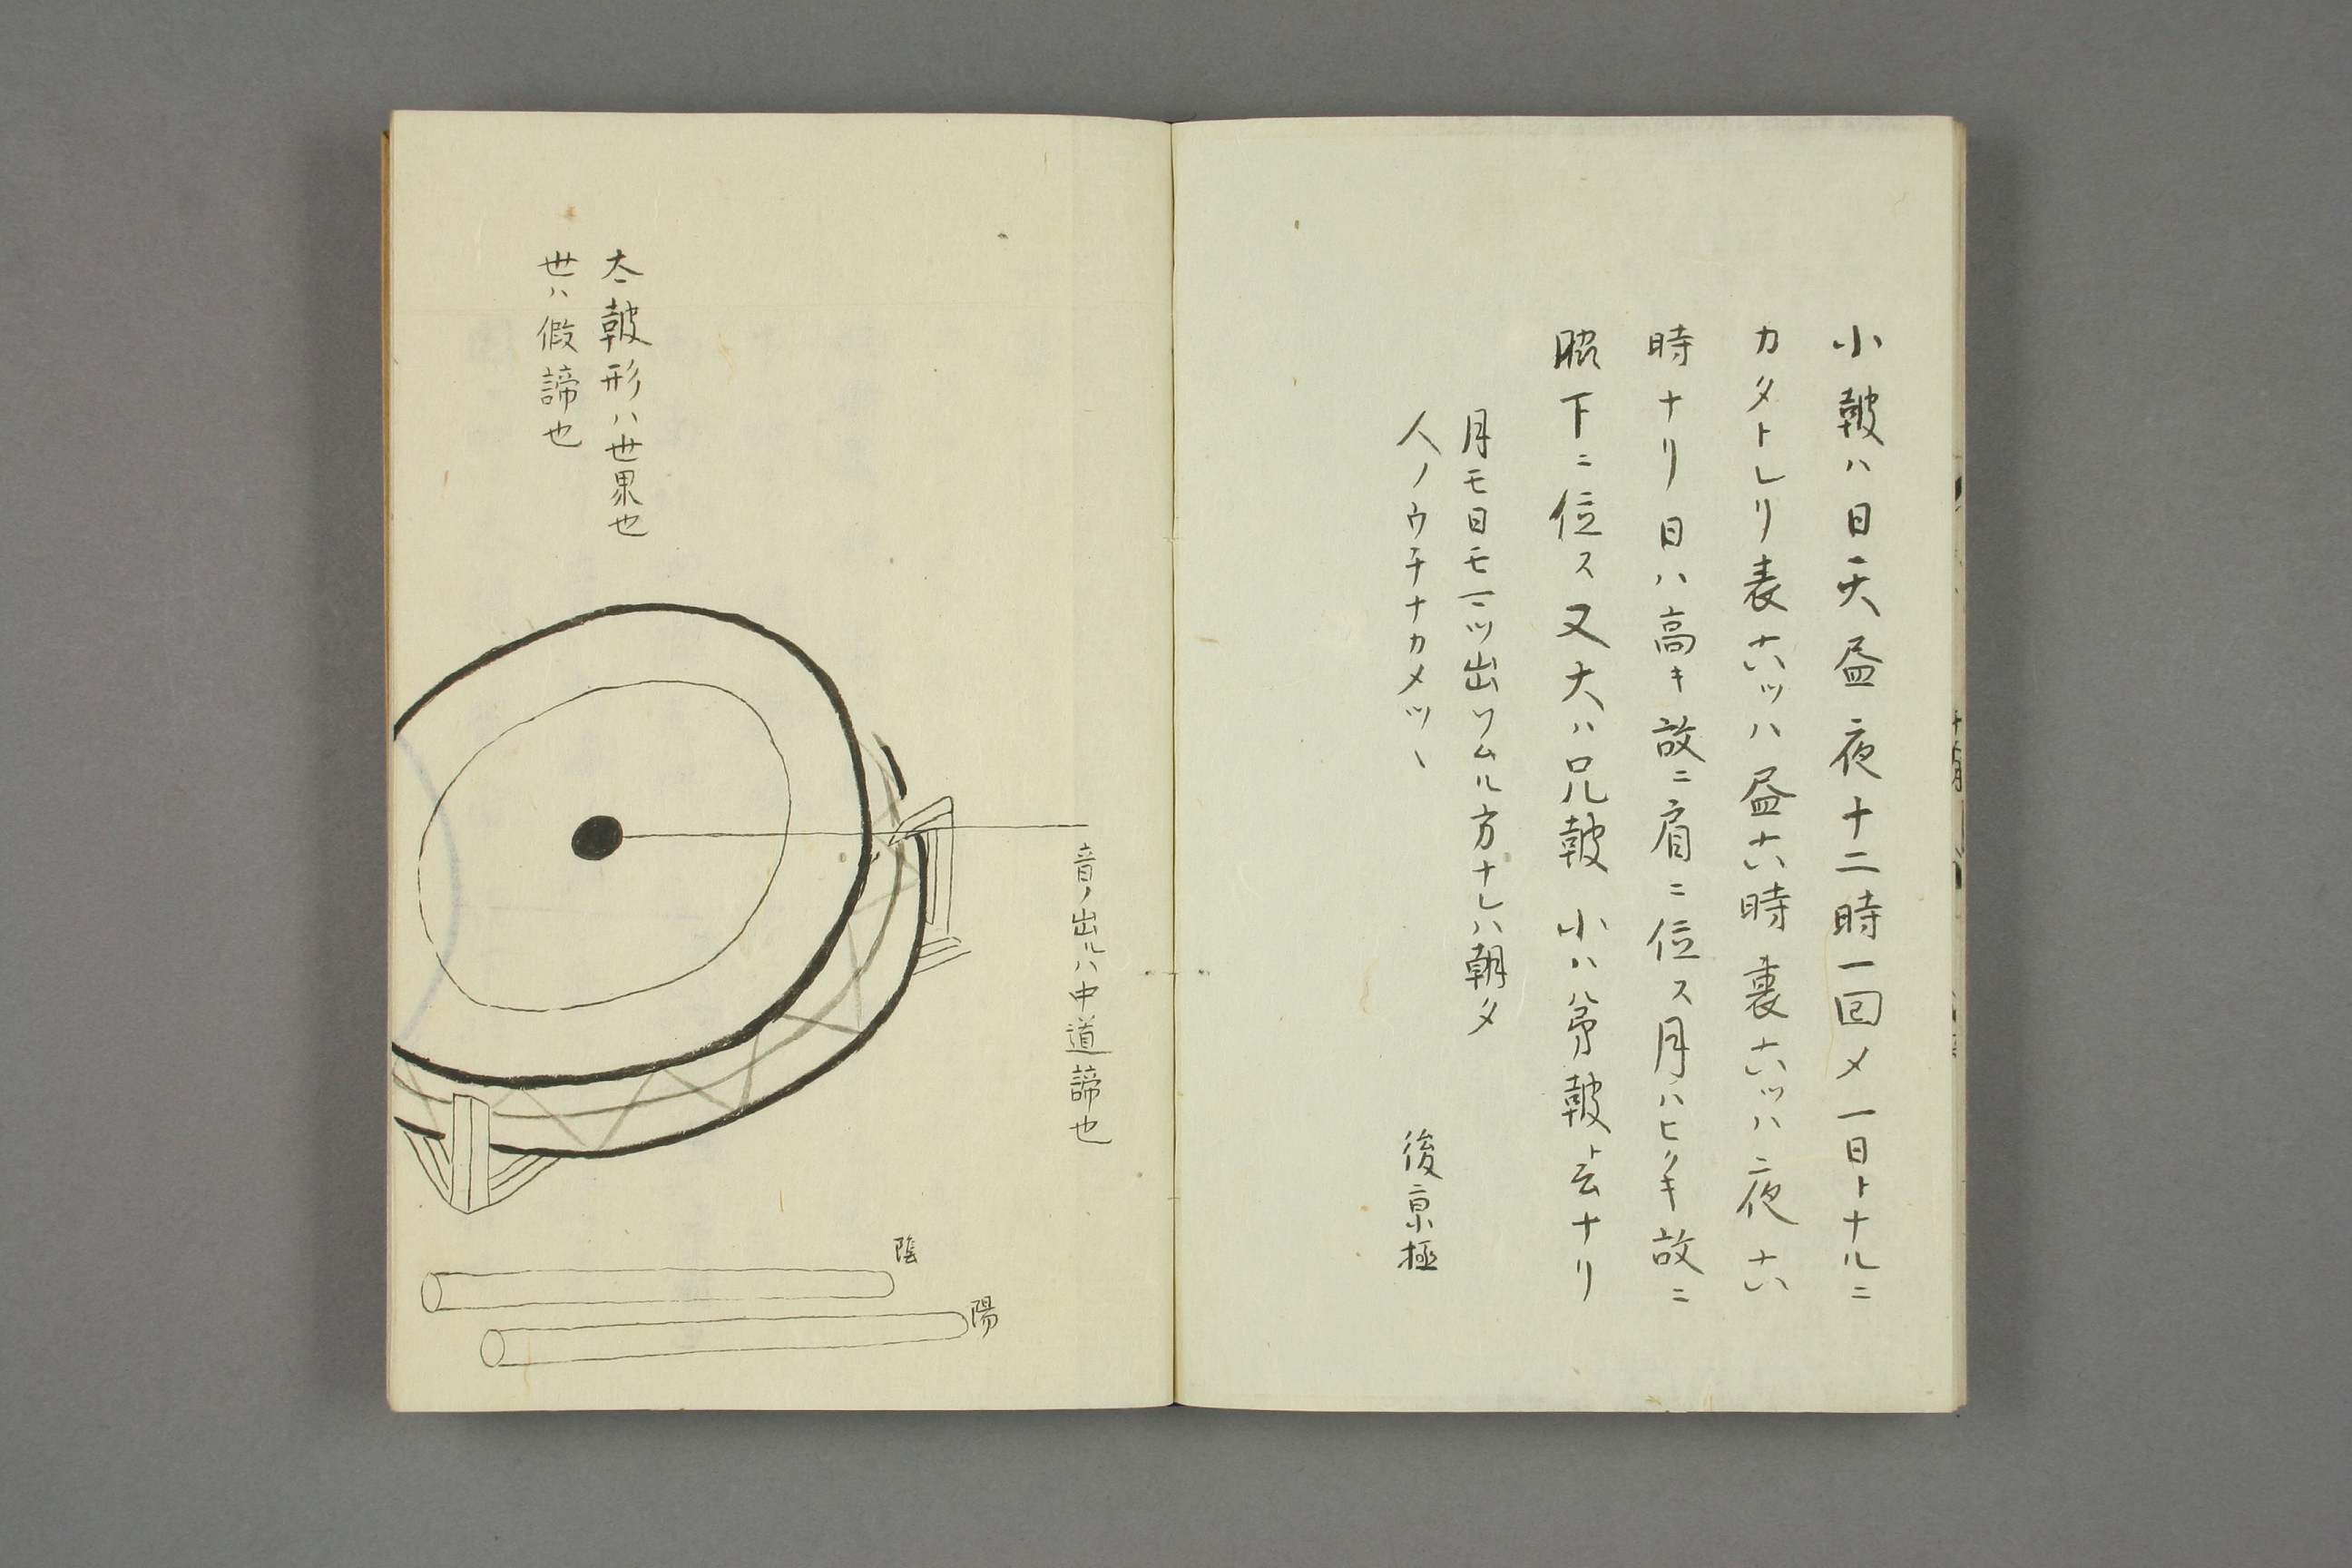 小皷ハ日天昼夜十二時一回〆一日トナルニ
カタトレリ表六ツハ昼六時裏六ツハ夜六
時ナリ日ハ高キ故ニ肩ニ位ス月ハヒクキ故ニ
脇下ニ位ス又大ハ兄皷小ハ弟皷ト云ナリ
月モ日モニツ出ツムル方ナレハ朝夕
人ノウチナカメツヽ
後京極
音ノ出ルハ中道諦也
太皷形ハ世界也
世ハ假諦也
陰
陽